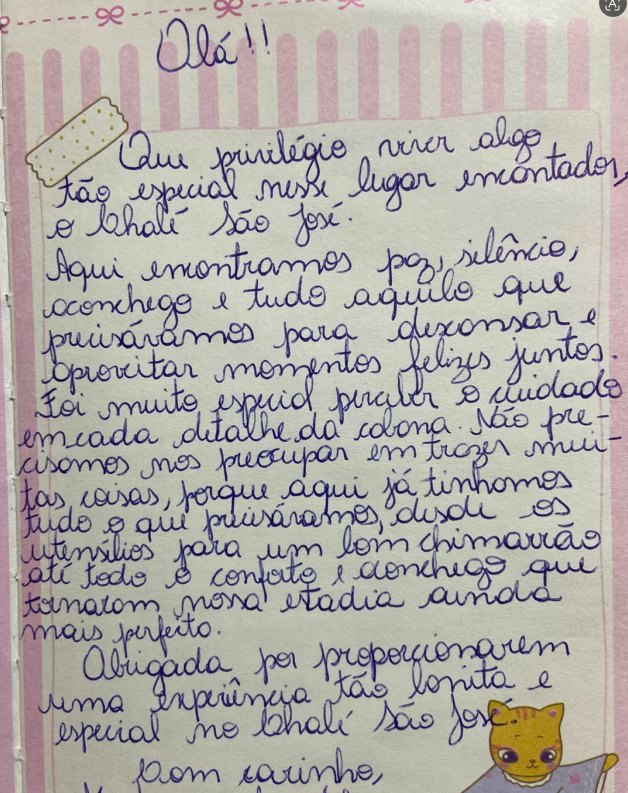 Olá!!
Que privilégio viver algo
tão especial nesse lugar encantador,
o Chalé São José.
Aqui encontramos paz, silêncio,
aconchego e tudo aquilo que
precisávamos para descansar e
aproveitar momentos felizes juntos.
Foi muito especial perceber o cuidado
em cada detalhe da cabana. Não pre-
cisamos nos preocupar em trazer mui-
tas coisas, porque aqui já tinhamos
tudo o que precisávamos, desde os
utensílios para um bom chimarrão
até todo o conforto e aconchego que
tornaram nossa estadia ainda
mais perfeito.
Obrigada por proporcionarem
uma experiência tão bonita e
especial no Chalé São José.
Com carinho,